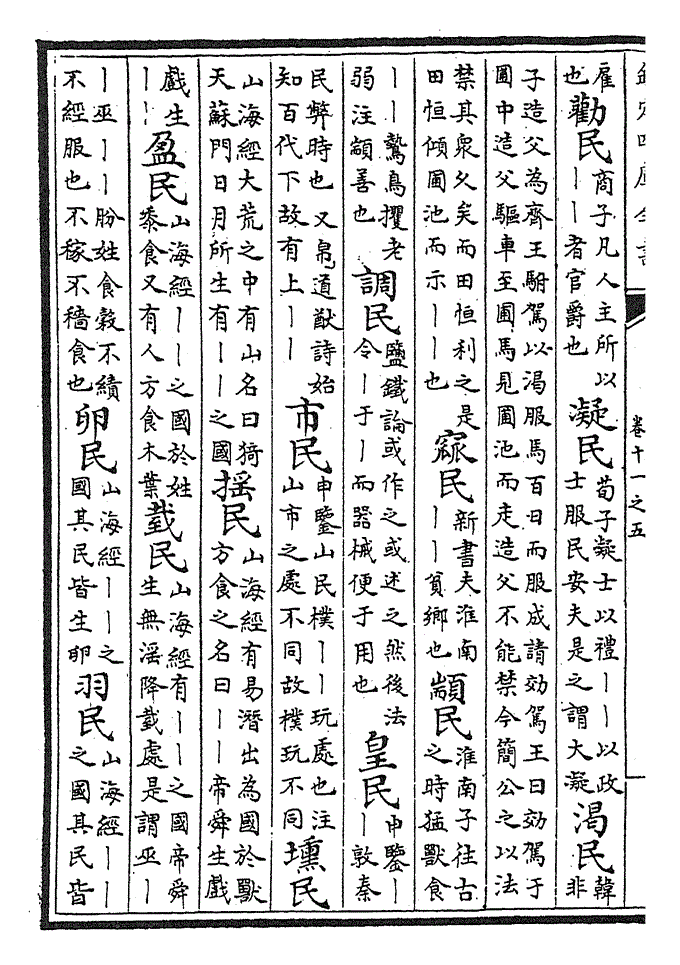 欽定四庫全書
卷十一之五
雇也勸民商子凡人主所以丨丨者官爵也凝民荀子凝士以禮丨丨以政士服民安夫是之謂大凝渴民韓非
子造父為齊王駙駕以渴服馬百日而服成請効駕王曰効駕于圃中造父驅車至圃馬見圃池而走造父不能禁今簡公之以法
禁其衆久矣而田恒利之是田恒傾圃池而示丨丨也寙民新書夫淮南丨丨貧鄉也顓民淮南子往古之時猛獸食
丨丨鷙鳥攫老弱注顓善也調民鹽鐵論或作之或述之然後法令丨于丨而器械便于用也皇民申鑒丨丨敦秦
民弊時也又帛道猷詩始知百代下故有上丨丨市民申鑒山民樸丨丨玩處也注山市之處不同故樸玩不同壎民
山海經大荒之中有山名曰猗天蘇門日月所生有丨丨之國摇民山海經有易潛出為國於獸方食之名曰丨丨帝舜生戲
戲生丨丨盈民山海經丨丨之國於姓黍食又有人方食木葉臷民山海經有丨丨之國帝舜生無淫降臷處是謂巫丨
丨巫丨丨朌姓食穀不績不經服也不稼不穡食也卵民山海經丨丨之國其民皆生卵羽民山海經丨丨之國其民皆